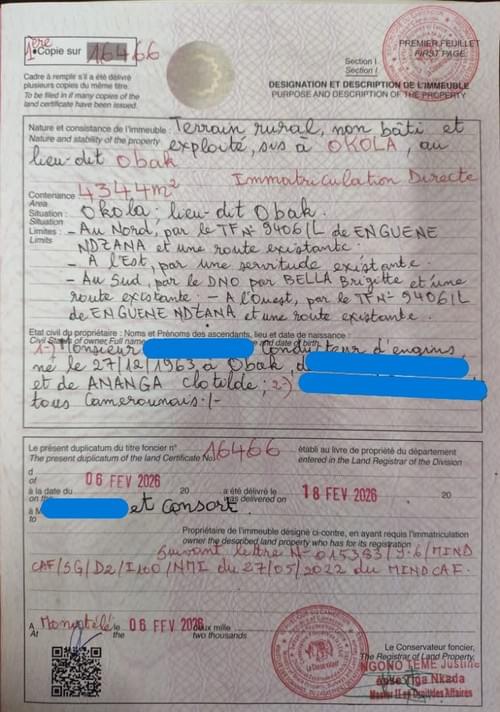 1ère
Copie sur 16466
PREMIER FEUILLET
FIRST PAGE
Section I
Section I
Cadre à remplir s'il a été délivré
plusieurs copies du même titre
To be filled in if many copies of the
land certificate have been issued.
DESIGNATION ET DESCRIPTION DE L'IMMEUBLE
PURPOSE AND DESCRIPTION OF THE PROPERTY
Nature et consistance de l'immeuble : Terrain rural, non bâti et
Nature and stability of the property exploité, sis à OKOLA, au
lieu-dit Obak
Immatriculation Directe
Contenance 4344m²
Area
Situation : Okola ; lieu-dit Obak.
Situation
Limites : - Au Nord, par le TF N° 9406/L de ENGUENE
Limits NDZANA et une route existante.
- A l'Est, par une servitude existante.
- Au Sud, par le DNO par BELLA Brigette et une
route existante ; - A l'Ouest, par le TF N° 9406/L
de ENGUENE NDZANA et une route existante.
Etat civil du propriétaire : Noms et Prénoms des ascendants, lieu et date de naissance :
Civil Status of owner, Full name and date of birth.
1-) Monsieur Conducteur d'engins,
né le 27/12/1963 à Obak, d
et de ANANGA Clotilde ; 2-)
tous Camerounais :/-
Le présent duplicatum du titre foncier n° 16466 établi au livre de propriété du département
The present duplicatum of the land Certificate No. entered in the Land Registrar of the Division
d
of
à la date du 06 FEV 2026 20 a été délivré le 18 FEV 2026 20
on the was delivered on
à M et Consort.
to
Propriétaire de l'immeuble désigné ci-contre, en ayant requis l'immatriculation
owner the described land property who has for its registration
Suivant lettre N° 015393/Y.6/MIND
CAF/SG/D2/I100/NMI du 27/05/2022 du MINDCAF.
A Monatélé le 06 FEV 2026 deux mille
At the two thousands
Le Conservateur foncier,
The Registrar of Land Property,
NGONO TEME Justine
épse Yiga Nkada
Master II en Droit des Affaires